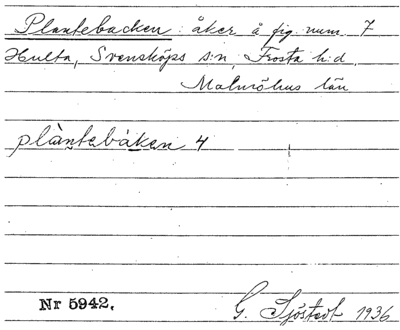 Plantebacken: åker å fig. num. 7
Hulta, Svensköps s:n, Frosta h:d.
Malmöhus län
plàntebáken 4
Nr 5942.
G. Sjöstedt 1936